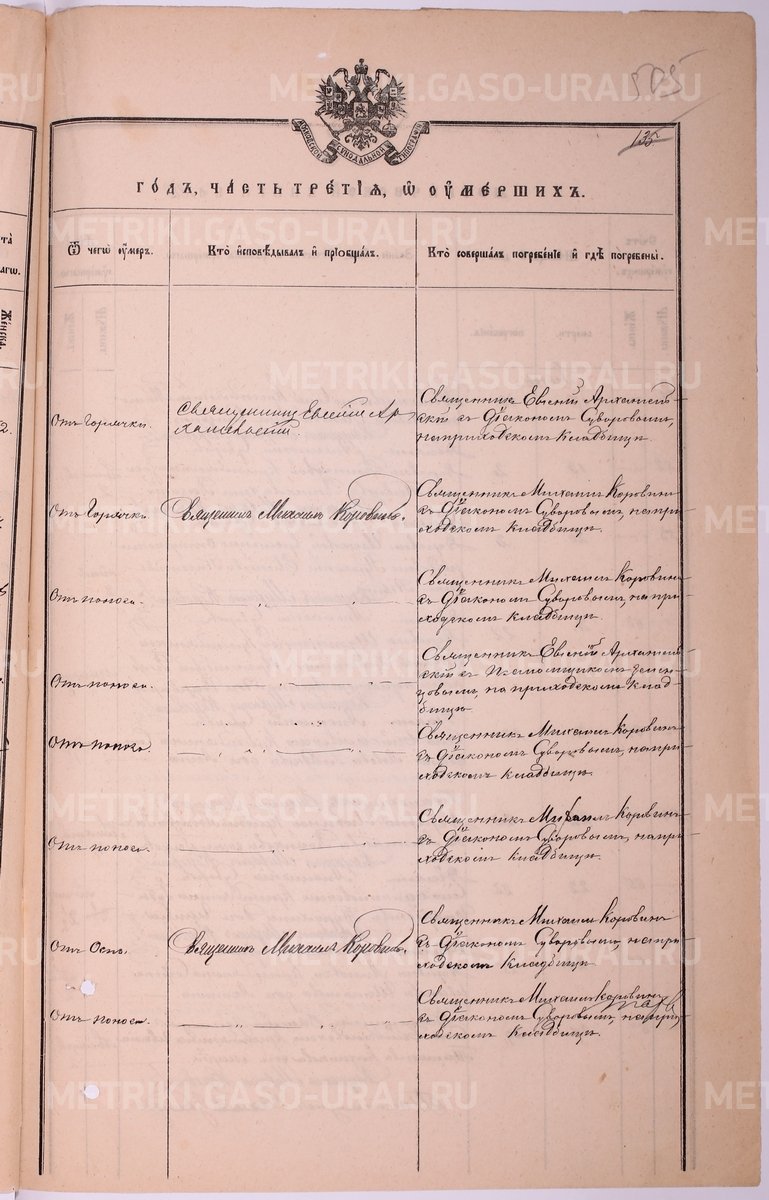 505
135
МОСКОВСКОЙ СѴНОДАЛЬНОЙ ТИПОГРАФІИ
го́дъ, ча́сть тре́тїѧ, ѡ҆ ᲂу҆ме́ршихъ.
Ѿ чегѡ̀ ᲂу҆́меръ.
Кто̀ и҆сповѣ́дывалъ и҆ прїѻбща́лъ.
Кто̀ соверша́лъ погребе́нїе и҆ гдѣ̀ погребены̀.
Отъ Горячки.
Священникъ Евгеній Ар
хангельскій.
Священникъ Евгеній Архангель-
скій съ Діакономъ Суворовымъ,
на приходскомъ кладбищѣ.
Отъ Горячки.
Священникъ Михаилъ Коровинъ.
Священникъ Михаилъ Коровинъ
съ Діакономъ Суворовымъ, на при-
ходскомъ кладбищѣ.
Отъ поноса.
Священникъ Михаилъ Коровинъ
съ Діакономъ Суворовымъ, на при-
ходскомъ кладбищѣ.
Отъ поноса.
Священникъ Евгеній Архангель-
скій съ Псаломщикомъ
на приходскомъ клад-
бищѣ.
Отъ поноса.
Священникъ Михаилъ Коровинъ
съ Діакономъ Суворовымъ, на при-
ходскомъ кладбищѣ.
Отъ поноса.
Священникъ Михаилъ Коровинъ
съ Діакономъ Суворовымъ, на при-
ходскомъ кладбищѣ.
Отъ Оспы.
Священникъ Михаилъ Коровинъ.
Священникъ Михаилъ Коровинъ
съ Діакономъ Суворовымъ, на при-
ходскомъ кладбищѣ.
Отъ поноса.
Священникъ Михаилъ Коровинъ
съ Діакономъ Суворовымъ, на при-
ходскомъ кладбищѣ.
METRIKI.GASO-URAL.RU
METRIKI.GASO-URAL.RU
METRIKI.GASO-URAL.RU
METRIKI.GASO-URAL.RU
METRIKI.GASO-URAL.RU
METRIKI.GASO-URAL.RU
METRIKI.GASO-URAL.RU
METRIKI.GASO-URAL.RU